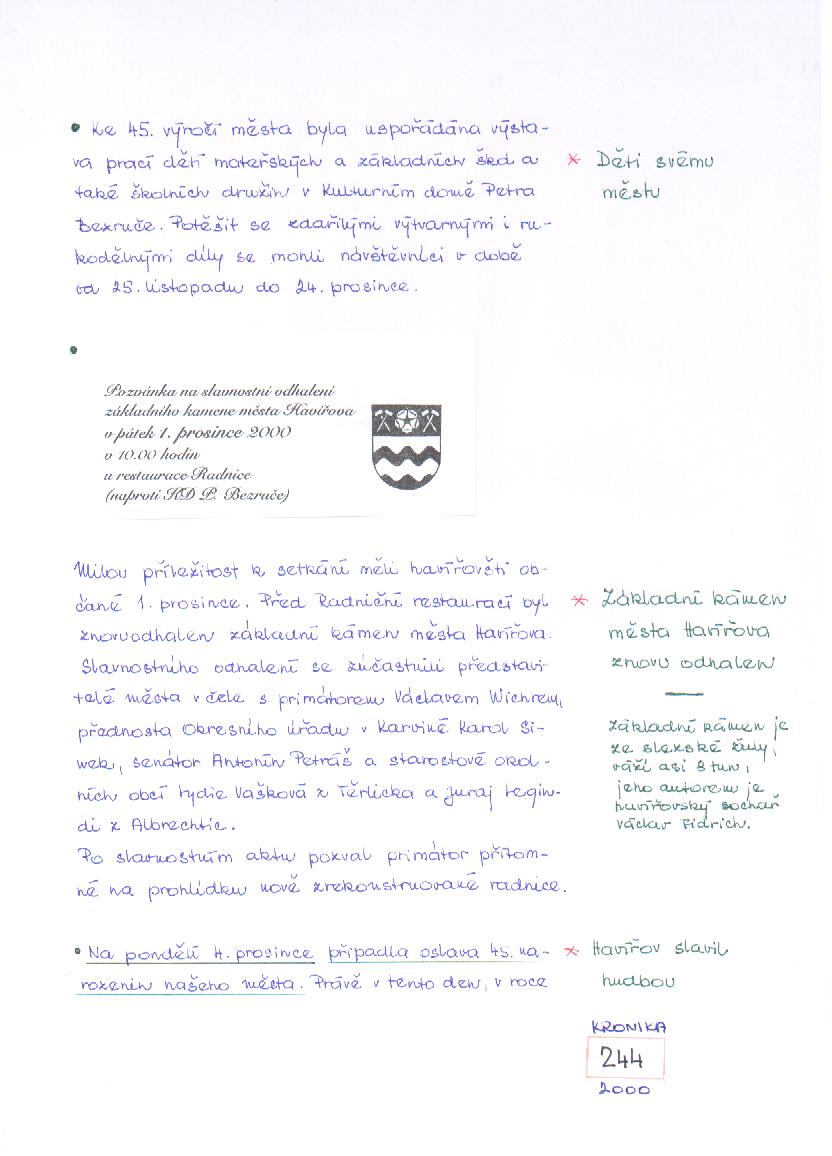 • Ke 45. výročí města byla uspořádána výsta-
va prací dětí mateřských a základních škol a
také školních družin v Kulturním domě Petra
Bezruče. Potěšit se zdařilými výtvarnými i ru-
kodělnými díly se mohli návštěvníci v době
od 25. listopadu do 24. prosince.
* Děti svému
městu
•
Pozvánka na slavnostní odhalení
základního kamene města Havířova
v pátek 1. prosince 2000
v 10.00 hodin
u restaurace Radnice
(naproti KD P. Bezruče)
Milou příležitost k setkání měli havířovští ob-
čané 1. prosince. Před Radniční restaurací byl
znovuodhalen základní kámen města Havířova.
Slavnostního odhalení se zúčastnili představi-
telé města v čele s primátorem Václavem Wichrem,
přednosta Okresního úřadu v Karviné Karol Si-
wek, senátor Antonín Petráš a starostové okol-
ních obcí Lydie Vašková z Těrlicka a Juraj Legin-
di z Albrechtic.
Po slavnostním aktu pozval primátor přítom-
né na prohlídku nově zrekonstruované radnice.
* Základní kámen
města Havířova
znovu odhalen
Základní kámen je
ze slezské žuly,
váží asi 8 tun,
jeho autorem je
havířovský sochař
Václav Fidrich.
• Na pondělí 4. prosince připadla oslava 45. na-
rozenin našeho města. Právě v tento den, v roce
* Havířov slavil
hudbou
KRONIKA
244
2000